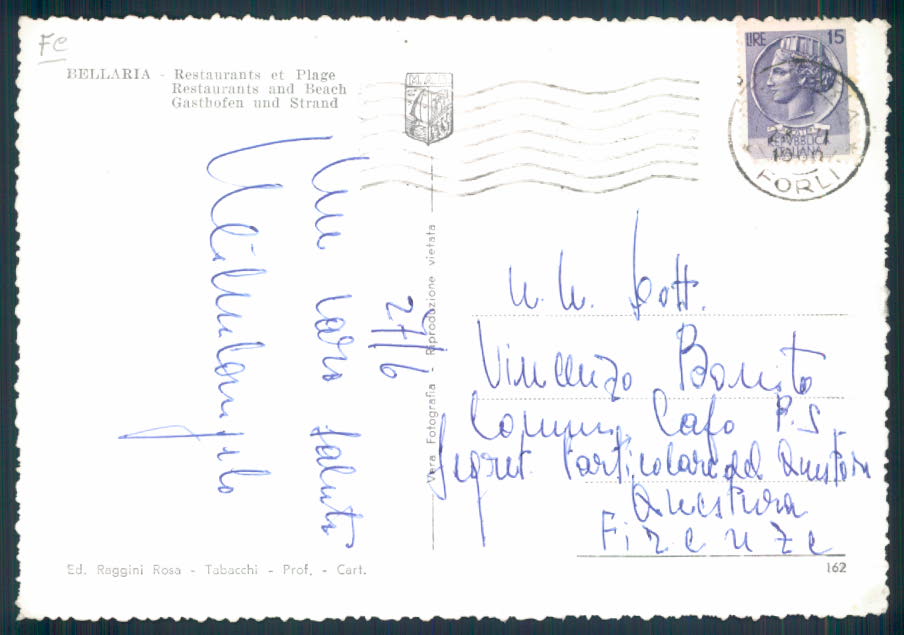 FC
BELLARIA - Restaurants et Plage
Restaurants and Beach
Gasthofen und Strand
M.A.R.
LIRE 15
POSTE
REPVBBLICA
ITALIANA
FORLI
Un caro saluto
27/6
Vera Fotografia - Riproduzione vietata
N. H. Dott.
Vincenzo Bonito
Commis. Capo P.S.
Segret. Particolare del Questore
Questura
Firenze
Ed. Raggini Rosa - Tabacchi - Prof. - Cart.
162